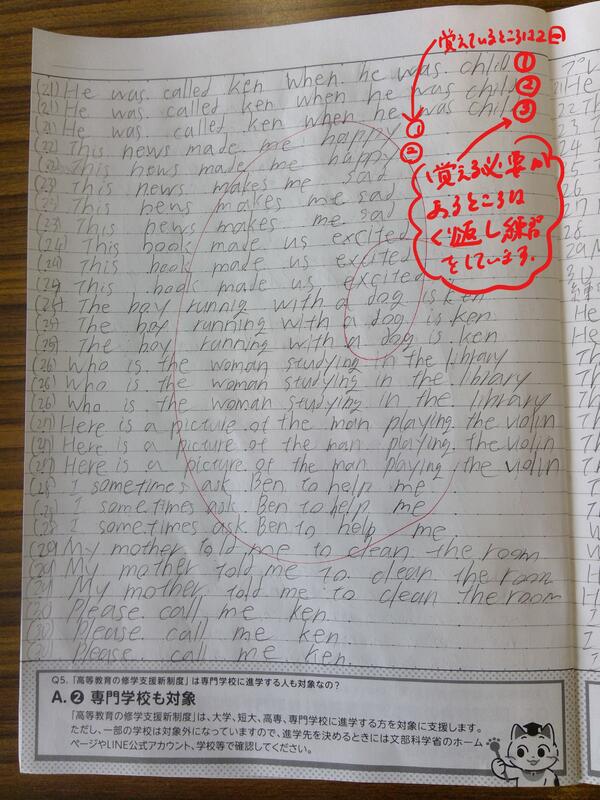 覚えているところは2回
(21) He was called ken when he was child ①
(21) He was called ken when he was child ②
(21) He was called ken when he was child ③
(22) This news made me happy ①
(22) This news made me happy ②
(23) This news makes me sad
(23) This news makes me sad
(23) This news makes me sad
覚える必要が
あるところは
くり返し練習
をしています.
(24) This book made us excited
(24) This book made us excited
(24) This book made us excited
(25) The boy runnig with a dog is ken
(25) The boy running with a dog is ken
(25) The boy running with a dog is ken
(26) Who is the woman studying in the library
(26) Who is the woman studying in the library
(26) Who is the woman studying in the library
(27) Here is a picture of the man playing the violin
(27) Here is a picture of the man playing the violin
(27) Here is a picture of the man playing the violin
(28) I sometimes ask Ben to help me
(28) I sometimes ask Ben to help me
(28) I sometimes ask Ben to help me
(29) My mother told me to clean the room
(29) My mother told me to clean the room
(29) My mother told me to clean the room
(30) Please call me ken.
(30) Please call me ken.
(30) Please call me ken.
Q5.「高等教育の修学支援新制度」は専門学校に進学する人も対象なの?
A.❷ 専門学校も対象
「高等教育の修学支援新制度」は、大学、短大、高専、専門学校に進学する方を対象に支援します。
ただし、一部の学校は対象外になっていますので、進学先を決めるときには文部科学省のホーム
ページやLINE公式アカウント、学校等で確認してください。